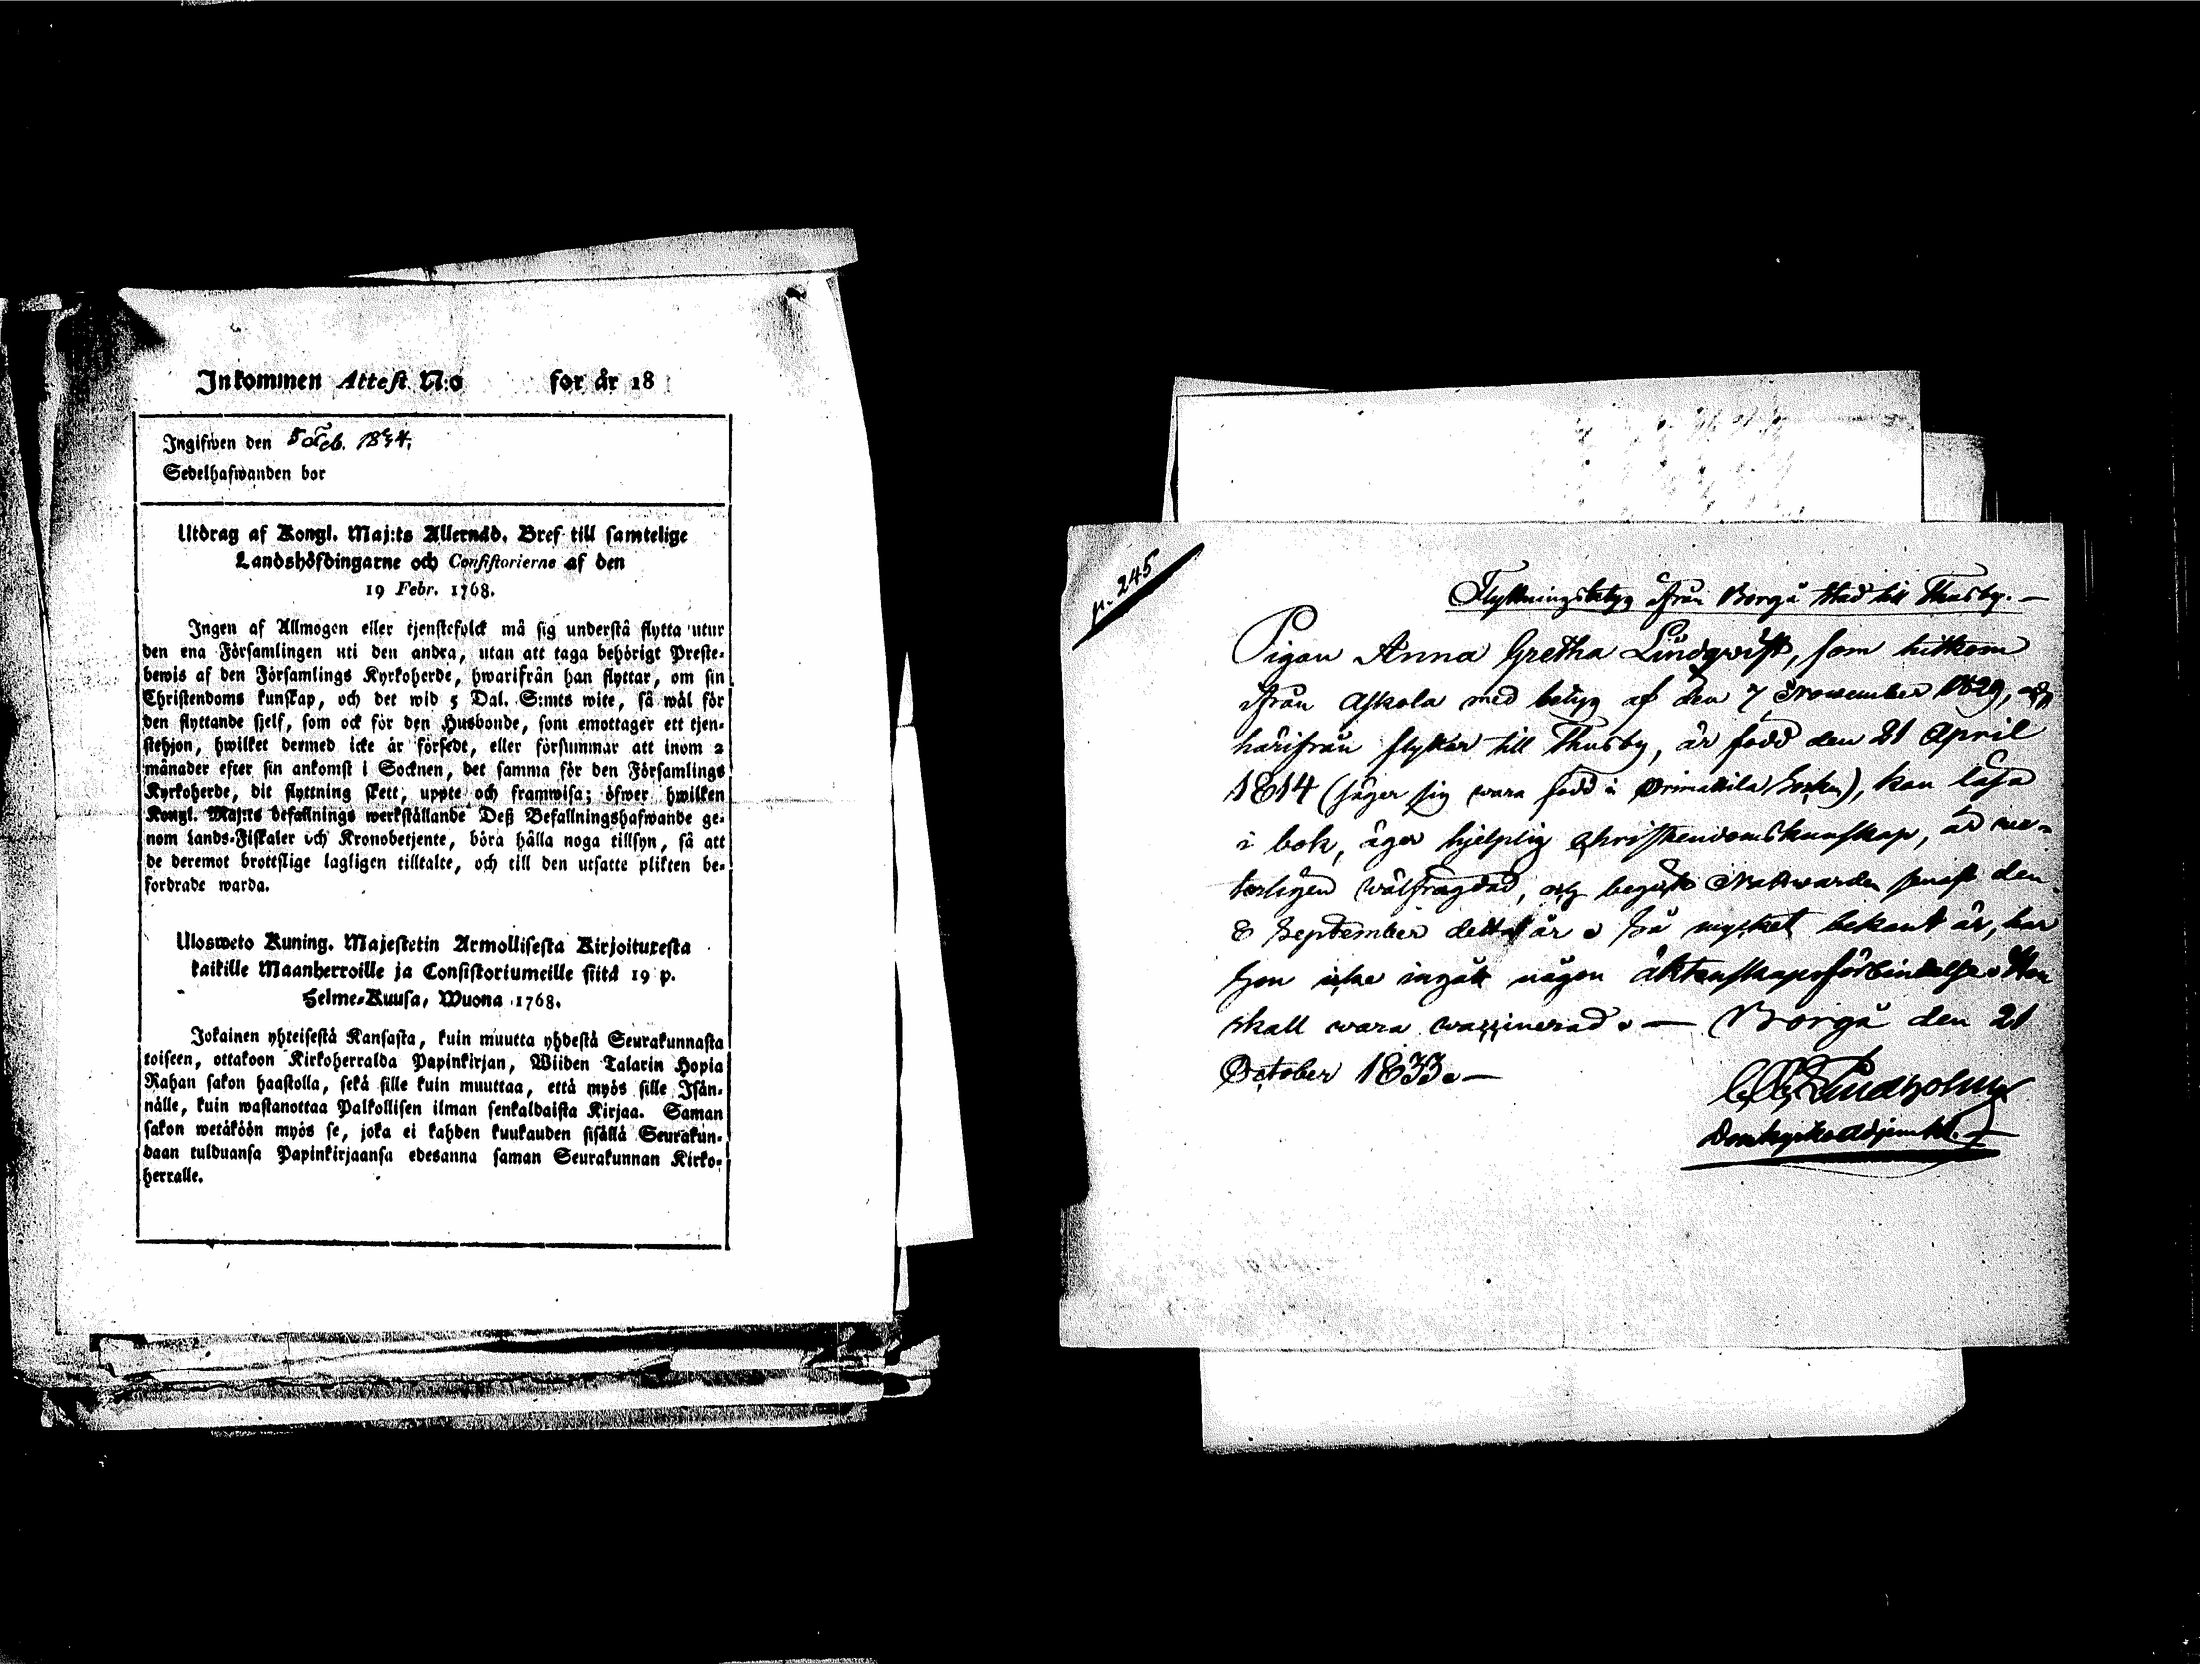 Inkommen Attest N:o for år 18
Ingifwen den 5 Feb. 1834.
Sedelhafwanden bor
Utdrag af Kongl. Maj:ts Allernåd. Bref till samtelige
Landshöfdingarne och Consistorierne af den
19 Febr. 1768.
Ingen af Allmogen eller tjenstefolck må sig understå flytta utur
den ena Församlingen uti den andra, utan att taga behörigt Preste-
bewis af den Församlings Kyrkoherde, hwarifrån han flyttar, om sin
Christendoms kunskap, och det wid 5 Dal. S:mts wite, så wäl för
den flyttande sjelf, som ock för den Husbonde, som emottager ett tjen-
stehjon, hwilket dermed icke är försedt, eller försummar att inom 2
månader efter sin ankomst i Socknen, det samma för den Församlings
Kyrkoherde, dit flyttning skett, uppte och framwisa; öfwer hwilken
Kongl. Maj:ts befallnings werkställande Deß Befallningshafwande ge-
nom Lands-Fiskaler och Kronobetjente, böra hålla noga tillsyn, så att
de deremot brottslige lagligen tilltalte, och till den utsatte plikten be-
fordrade warda.
Ulosweto Kuning. Majestetin Armollisesta Kirjoituxesta
kaikille Maanherroille ja Consistoriumeille siitä 19 p.
Helme-Kuusa, Wuona 1768.
Jokainen yhteisestä Kansasta, kuin muutta yhdestä Seurakunnasta
toiseen, ottakoon Kirkoherralda Papinkirjan, Wiiden Talarin Hopia
Rahan sakon haastolla, sekä sille kuin muuttaa, että myös sille Isän-
nälle, kuin wastanottaa Palkollisen ilman senkaldaista Kirjaa. Saman
sakon wetäköön myös se, joka ei kahden kuukauden sisällä Seurakun-
daan tulduansa Papinkirjaansa edesanna saman Seurakunnan Kirko-
herralle.
p. 245
Flyttningsbetyg ifrån Borgå stad till Thusby. —
Pigan Anna Gretha Lindqvist, som hitkom
ifrån Askola med betyg af den 7 November 1829, och
härifrån flyttar till Thusby, är född den 21 April
1814 (säger sig wara född i Orimattila Socken), kan läsa
i bok, äger hjelplig Christendomskunskap, är
wälfrägdad, och begått Nattwarden senast den
8 September detta år. Så mycket bekant är, har
hon icke ingått någon äktenskapsförbindelse. Hon
skall wara waccinerad. — Borgå den 21
October 1833. —
Lindholm
Domkyrko Adjunkt.